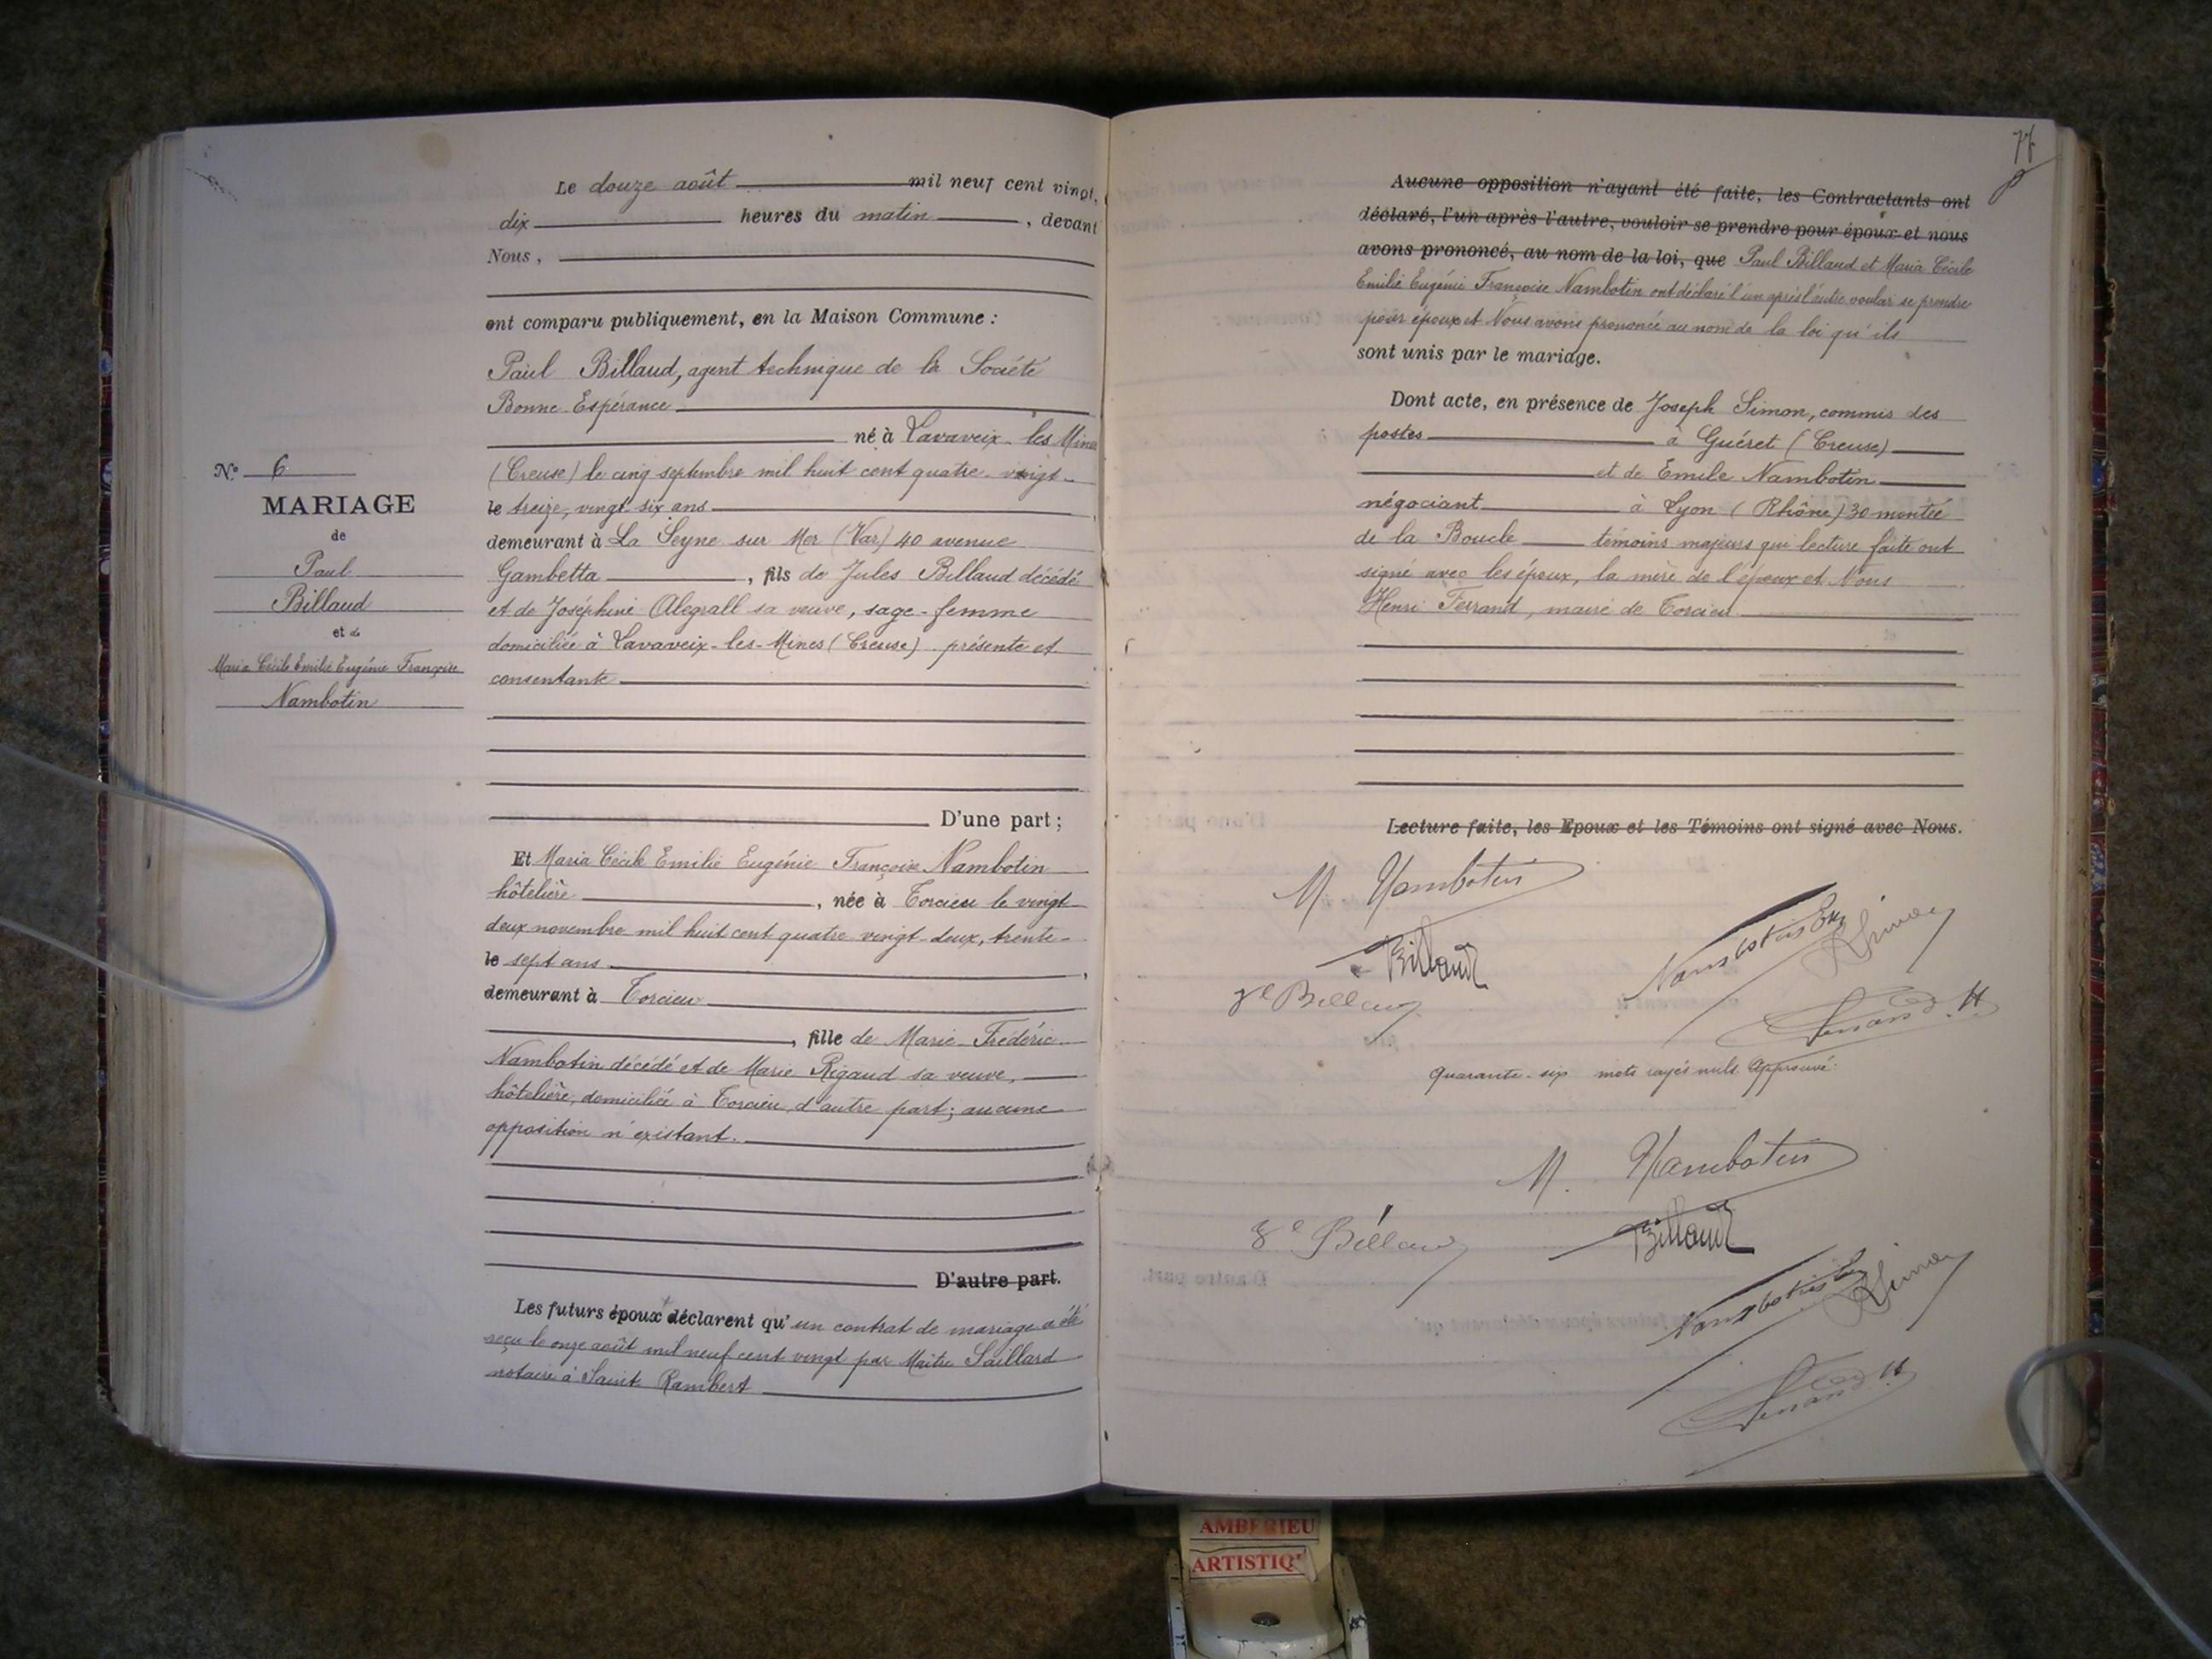 Le douze août mil neuf cent vingt,
dix heures du matin, devant
Nous,
ont comparu publiquement, en la Maison Commune :
Paul Billaud, agent technique de la Société
Bonne-Espérance
né à Lavaveix-les-Mines
(Creuse) le cinq septembre mil huit cent quatre-vingt-
le treize, vingt-six ans
demeurant à La Seyne sur Mer (Var) 40 avenue
Gambetta, fils de Jules Billaud décédé
et de Joséphine Alegrall sa veuve, sage-femme
domiciliée à Lavaveix-les-Mines (Creuse) présente et
consentante
D'une part ;
N° 6
MARIAGE
de
Paul
Billaud
et de
Maria Cécile Emilie Eugénie Françoise
Nambotin
Et Maria Cécile Emilie Eugénie Françoise Nambotin
hôtelière, née à Torcieu le vingt
deux novembre mil huit cent quatre-vingt-deux, trente-
le sept ans
demeurant à Torcieu
, fille de Marie Frédéric
Nambotin décédé et de Marie Rigaud sa veuve,
hôtelière, domiciliée à Torcieu, d'autre part ; aucune
opposition n'existant.
D'autre part.
Les futurs époux déclarent qu'un contrat de mariage a été
reçu le onze août mil neuf cent vingt par Maître Saillard
notaire à Saint Rambert
Aucune opposition n'ayant été faite, les Contractants ont
déclaré, l'un après l'autre, vouloir se prendre pour époux et nous
avons prononcé, au nom de la loi, que Paul Billaud et Maria Cécile
Emilie Eugénie Françoise Nambotin ont déclaré l'un après l'autre vouloir se prendre
pour époux et Nous avons prononcé au nom de la loi qu'ils
sont unis par le mariage.
Dont acte, en présence de Joseph Simon, commis des
postes à Guéret (Creuse)
et de Emile Nambotin
négociant à Lyon (Rhône) 30 montée
de la Boucle témoins majeurs qui lecture faite ont
signé avec les époux, la mère de l'époux et Nous
Henri Ferrand, maire de Torcieu
Lecture faite, les Epoux et les Témoins ont signé avec Nous.
M. Nambotin
Billaud
Nambotin Em
JSimon
Ve Billaud
Ferrand H.
Quarante-six mots rayés nuls. Approuvé.
M. Nambotin
Billaud
Ve Billaud
Nambotin Em
JSimon
Ferrand H
AMBERIEU
ARTISTIQ'